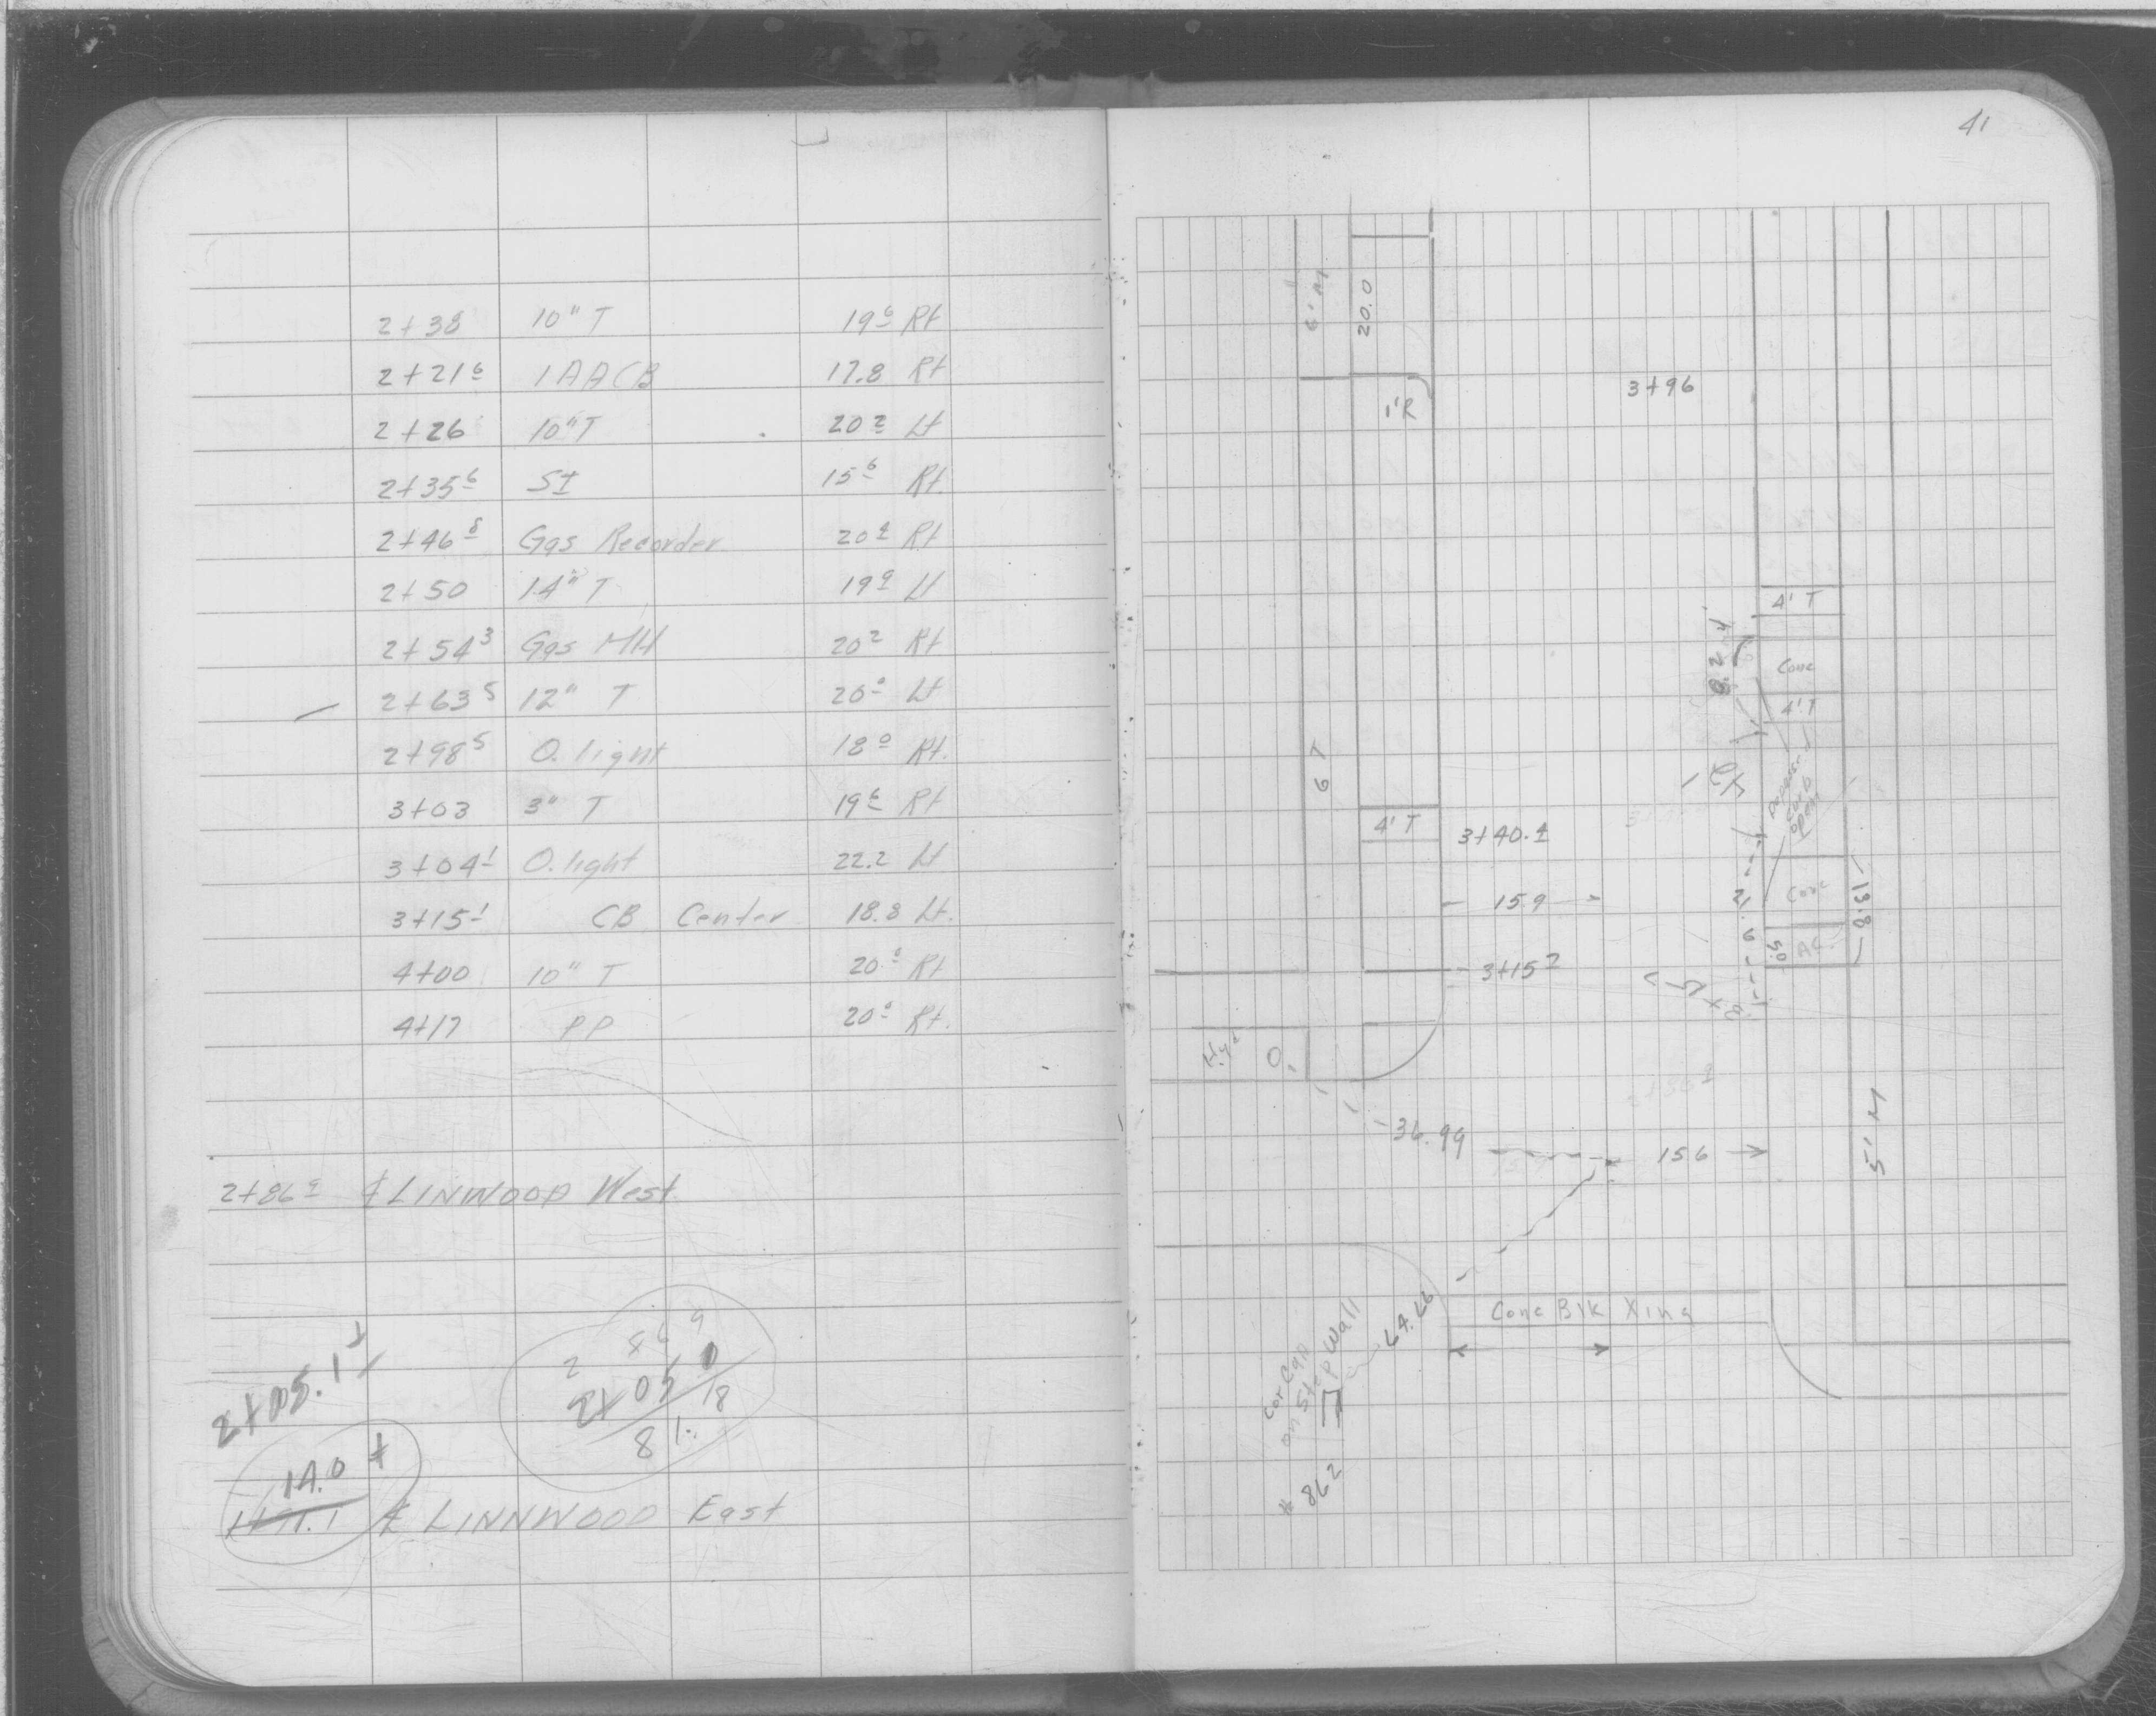 41
2+38 10" T 19⁶ Rt
2+21⁶ 1AACB 17.8 Rt
2+26 10"T 20² Lt
2+35⁶ 15⁶ Rt.
2+46⁸ Gas Recorder 20⁴ Rt
2+50 14" T 19⁹ Lt
2+54³ Gas MH 20² Rt
2+63⁵ 12" T 20⁰ Lt
2+98⁵ O. light 18⁰ Rt.
3+03 3" T 19⁶ Rt
3+04¹ O. light 22.2 Lt
3+15¹ CB Center 18.8 Lt.
4+00 10" T Rt
4+17 PP Rt.
2+86⁹ ℄ LINWOOD West
2+05.1
14.0
℄ LINNWOOD East
6' M
20.0
3+96
1'R
4' T
Conc
4' T
6 T
4' T
3+40.4
15.9
Conc
18.8
5.0
AC
3+15²
Hyd
36.99
15.6
5' M
Conc Blk Xing
64.66
Cor Cap
on Step Wall
# 862